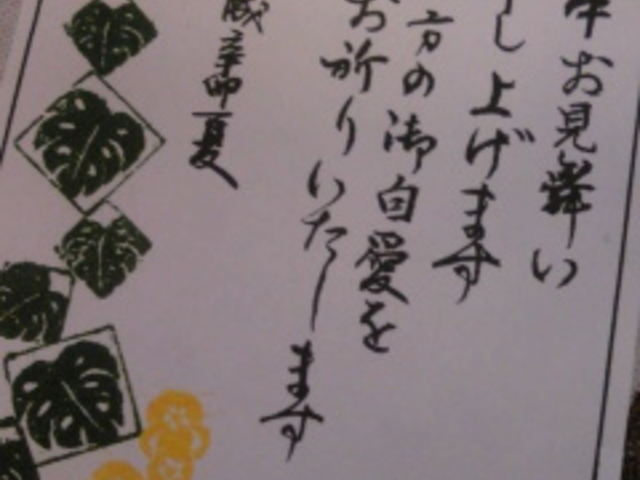 中お見舞い
し上げます
方の御自愛を
お祈りいたします
歳辛卯夏